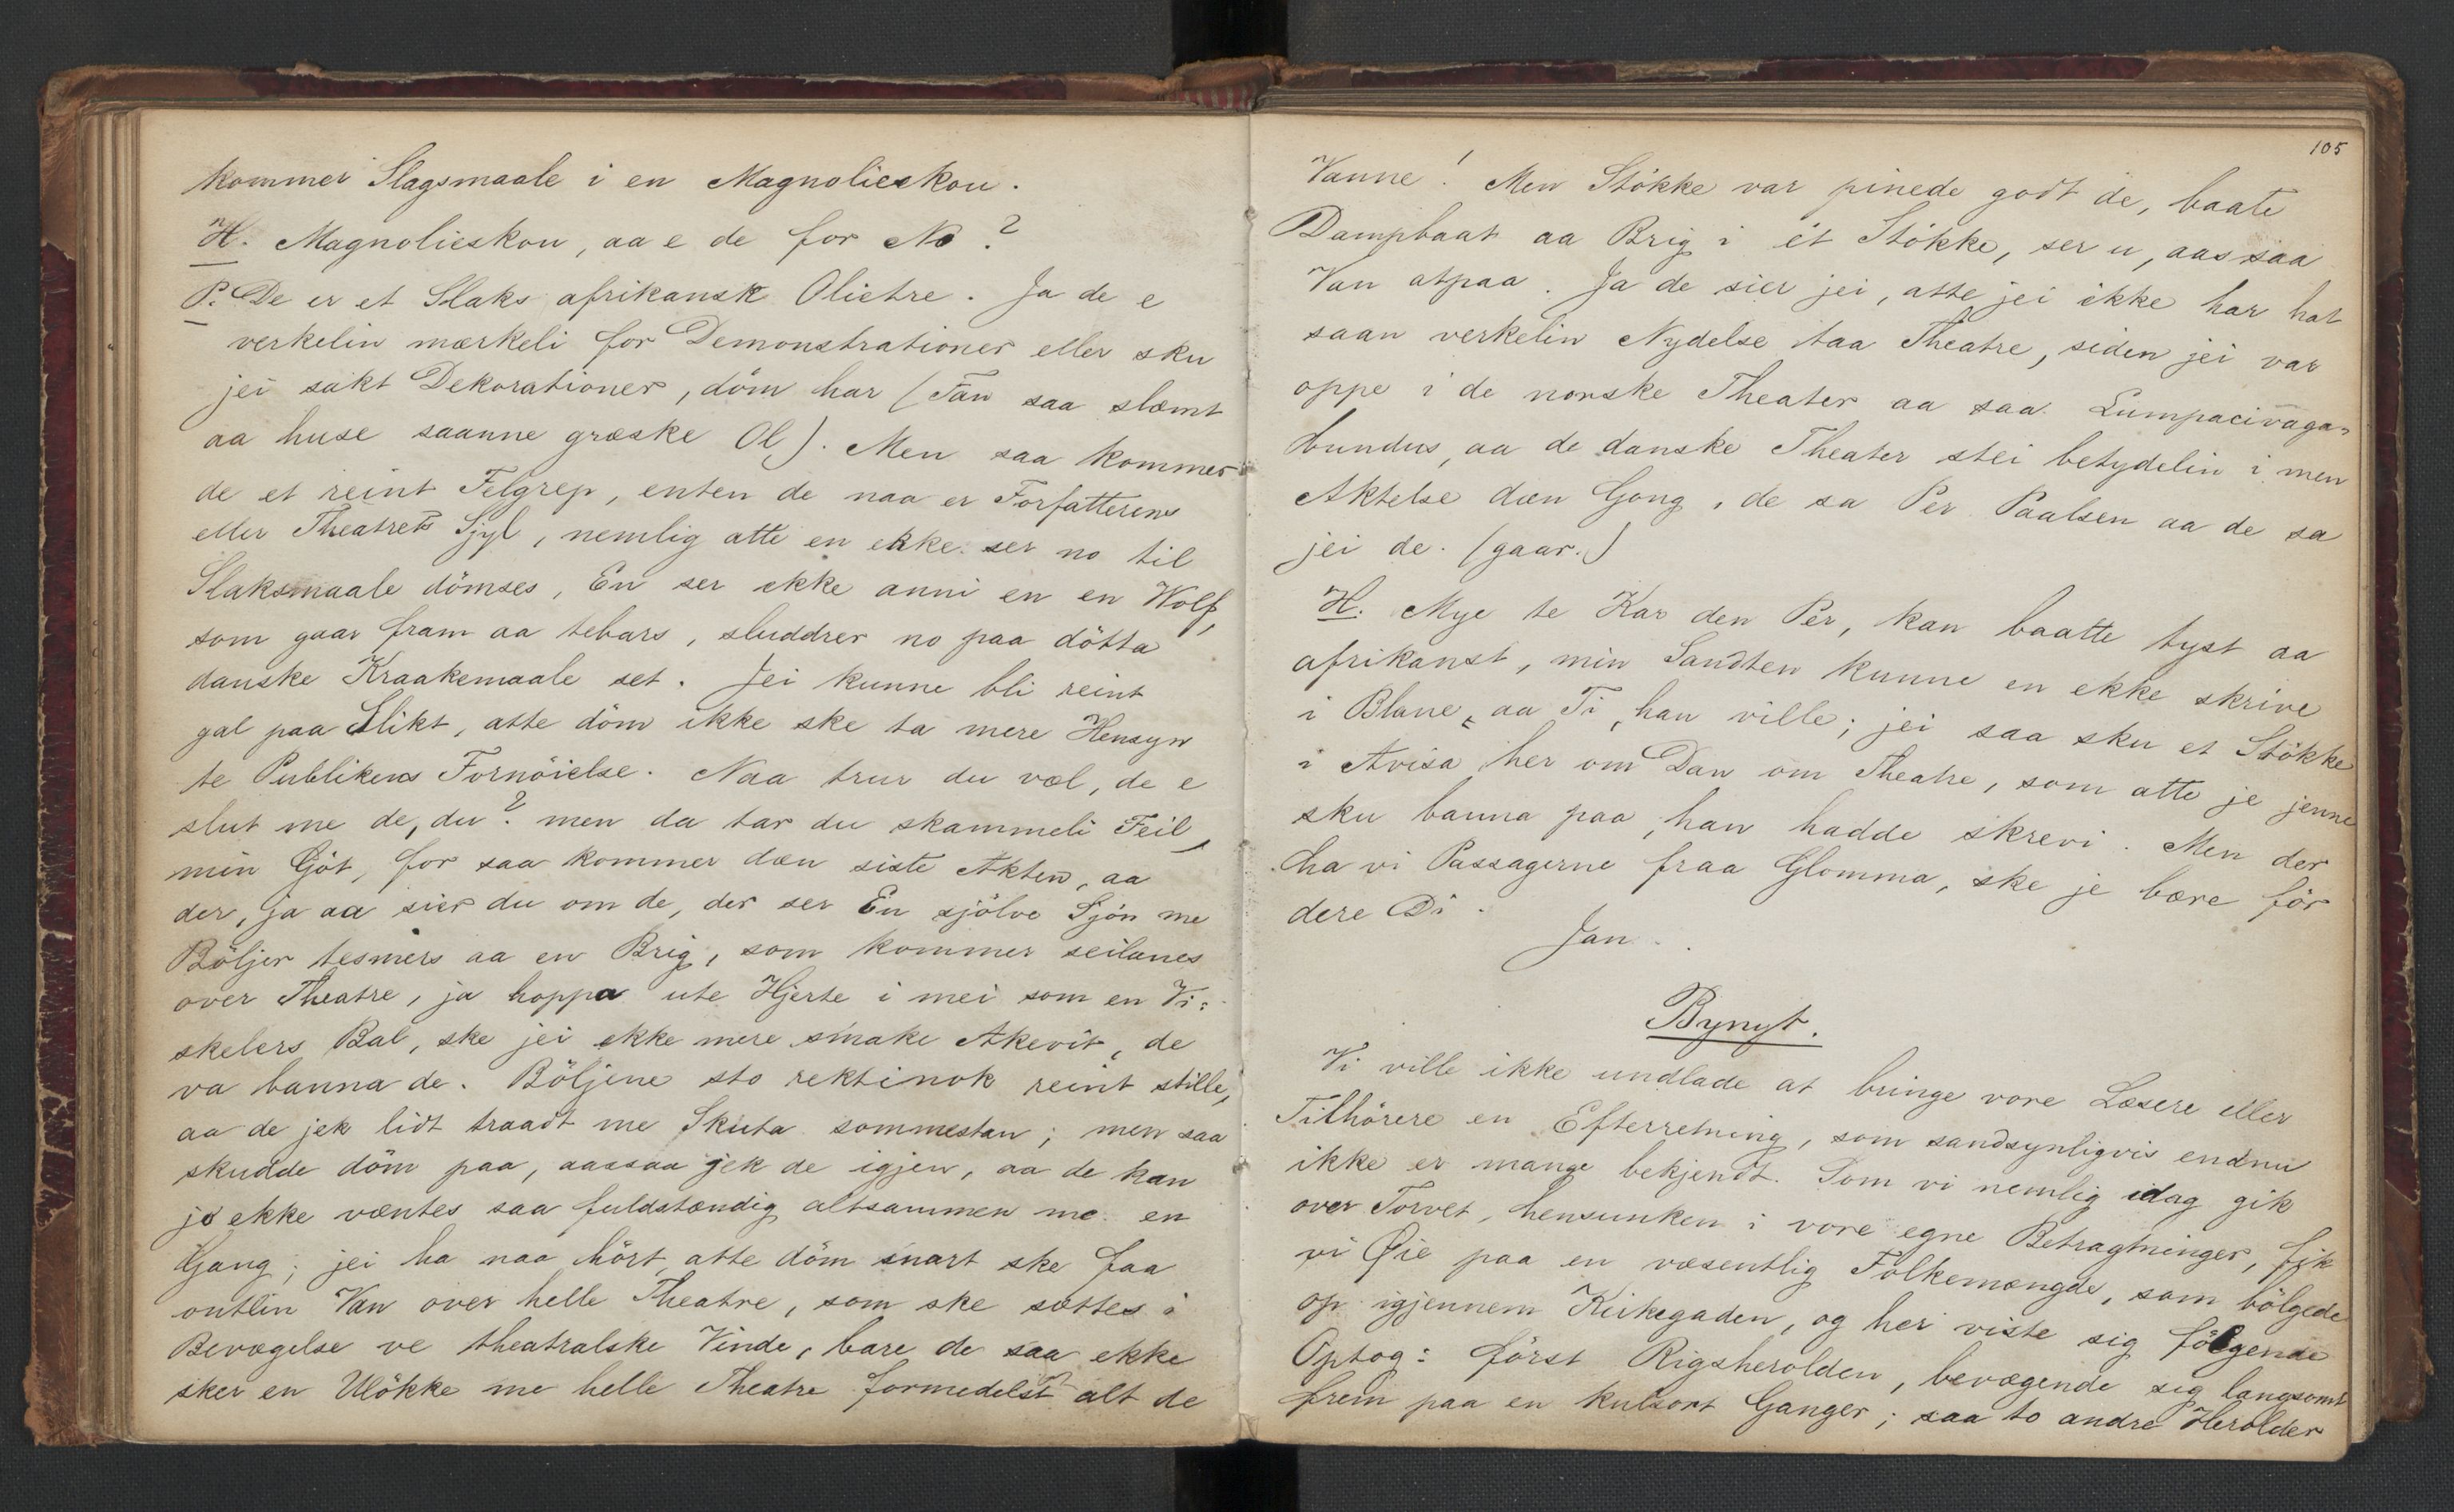 kommer Slagsmaale i en Magnolieskou.
H. Magnolieskou, aa e de for No?
P. De er et Slaks afrikansk Olietre. Ja de e
verkelin mærkeli for Demonstrationer eller sku
jei sakt Dekorationer, döm har (Fan saa slæmt
aa huse saanne græske Ol). Men saa kommer
de et reint Felgrep, enten de naa er Forfatterens
eller Theatrets Sjyl, nemlig atte en ekke ser no til
Slaksmaale dömses, En ser ekke anni en en Wolf,
som gaar fram aa tebars, sluddrer no paa dötta
danske Kraakemaale set. Jei kunne bli reint
gal paa Slikt, atte döm ikke ske ta mere Hensyn
te Publikens Fornöielse. Naa trur du væl, de e
slut me de, du? men da tar du skammeli Feil,
min Gjöt, for saa kommer dæn siste Akten, aa
der, ja aa sier du om de, der ser En sjölve Sjön me
Böljer tesmers aa en Brig, som kommer seilanes
over Theatre, ja hoppa ute Hjerte i mei som en Vi-
skelers Bal, ske jei ekke mere smake Akevit, de
va banna de. Böljene sto rektinok reint stille,
aa de jek lidt traadt me Skuta sommestan; men saa
skudde döm paa, aassaa jek de igjen, aa de kan
jo ekke væntes saa fuldstændig altsammen me en
Gjang; jei ha naa hört, atte döm snart ske faa
ontlin Van over helle Theatre, som ske sættes i
Bevægelse ve theatralske Vinde, bare de saa ekke
sker en Ulökke me helle Theatre formedelst alt de
105
Vanne! Men Stökke var pinede godt de, baate
Dampbaat aa Brig i ét Stökke, ser u, aassaa
Van atpaa. Ja de sier jei, atte jei ikke har hat
saan verkelin Nydelse taa Theatre, siden jei var
oppe i de norske Theater aa saa Lumpacivaga-
bundus, aa de danske Theater stei betydelin i men
Aktelse dæn Gong, de sa Per Paalsen aa de sa
jei de. (gaar.)
H. Mye te Kar den Per, kan baatte tyst aa
afrikanst, min Sandten kunne en ekke skrive
i Blane, aa Ti, han ville; jei saa sku et Stökke
i Avisa her om Dan om Theatre, som atte je jenne
sku banna paa, han hadde skrevi. Men der
ha vi Passagerne fraa Glomma, ske je bære för
dere Di.
Jan.
Bynyt.
Vi ville ikke undlade at bringe vore Læsere eller
Tilhörere en Efterretning, som sandsynligvis endnu
ikke er mange bekjendt. Som vi nemlig idag gik
over Torvet, hensunken i vore egne Betragtninger, fik
vi Øie paa en væsentlig Folkemængde, som bölgede
op igjennem Kirkegaden, og her viste sig fölgende
Optog: först Rigsherolden, bevægende sig langsomt
frem paa en kulsort Ganger; saa to andre Herolder